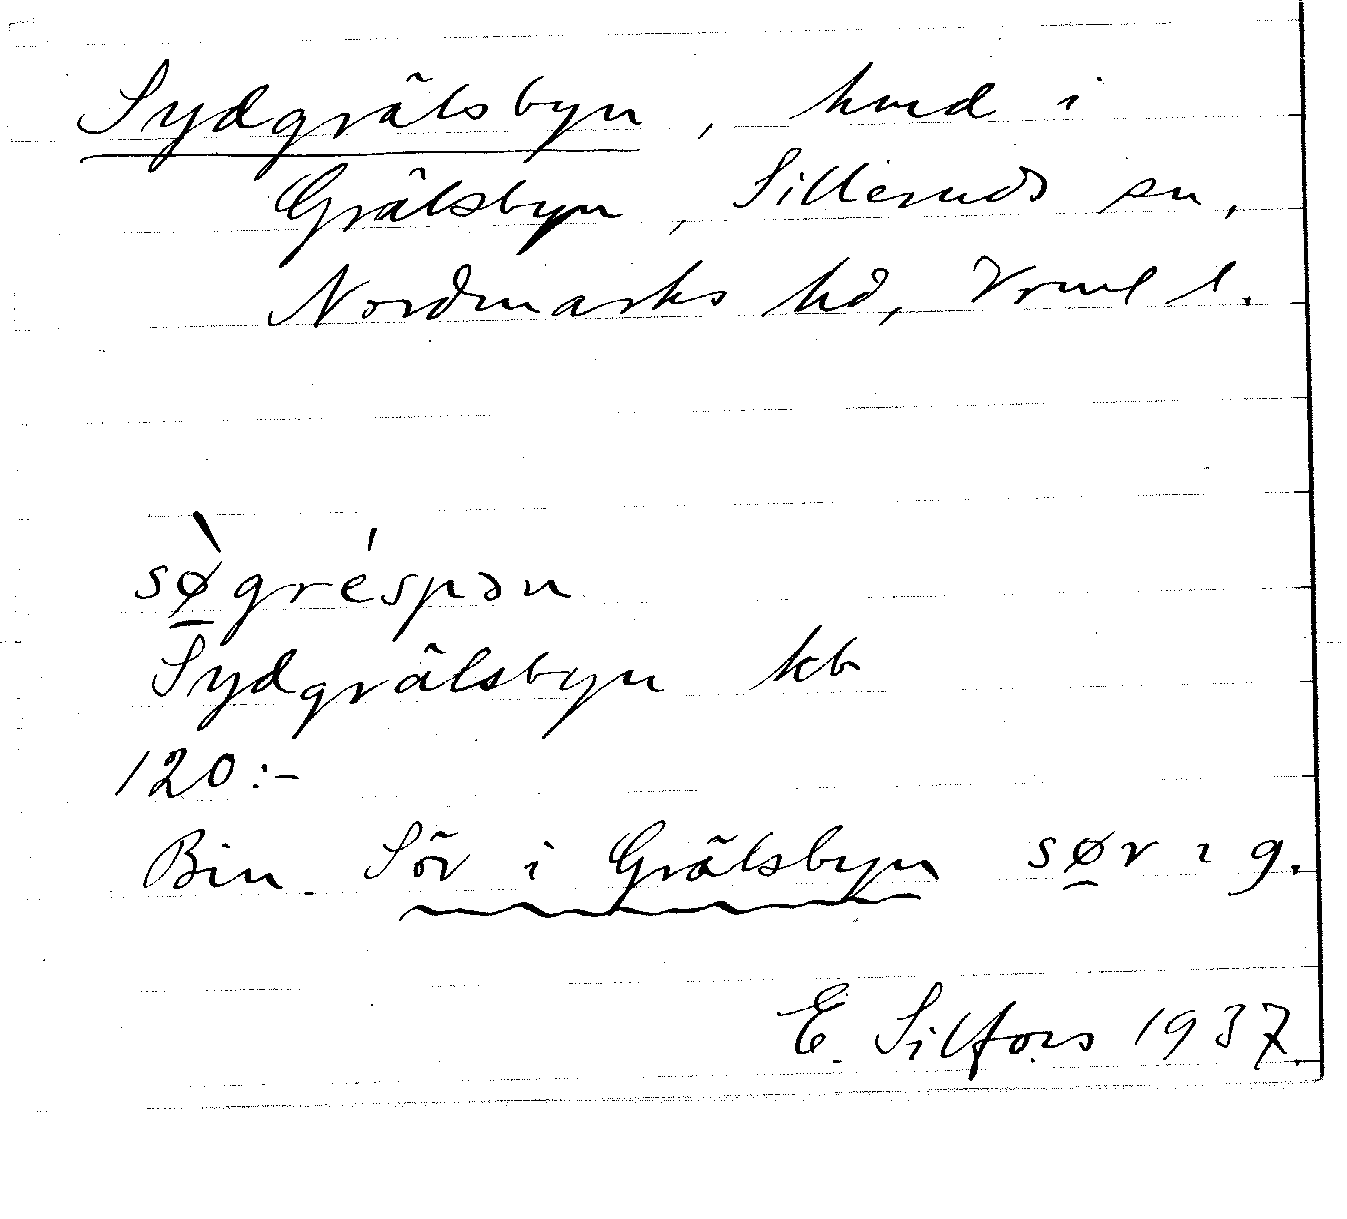 Sydgrälsbyn, hmd i
Grälsbyn, Silleruds sn,
Nordmarks hd, Vrml l.
sø̀gréspən
Sydgrälsbyn kb
120:-
Bin. Sör i Grälsbyn sør ı g.
E. Silfors 1937.